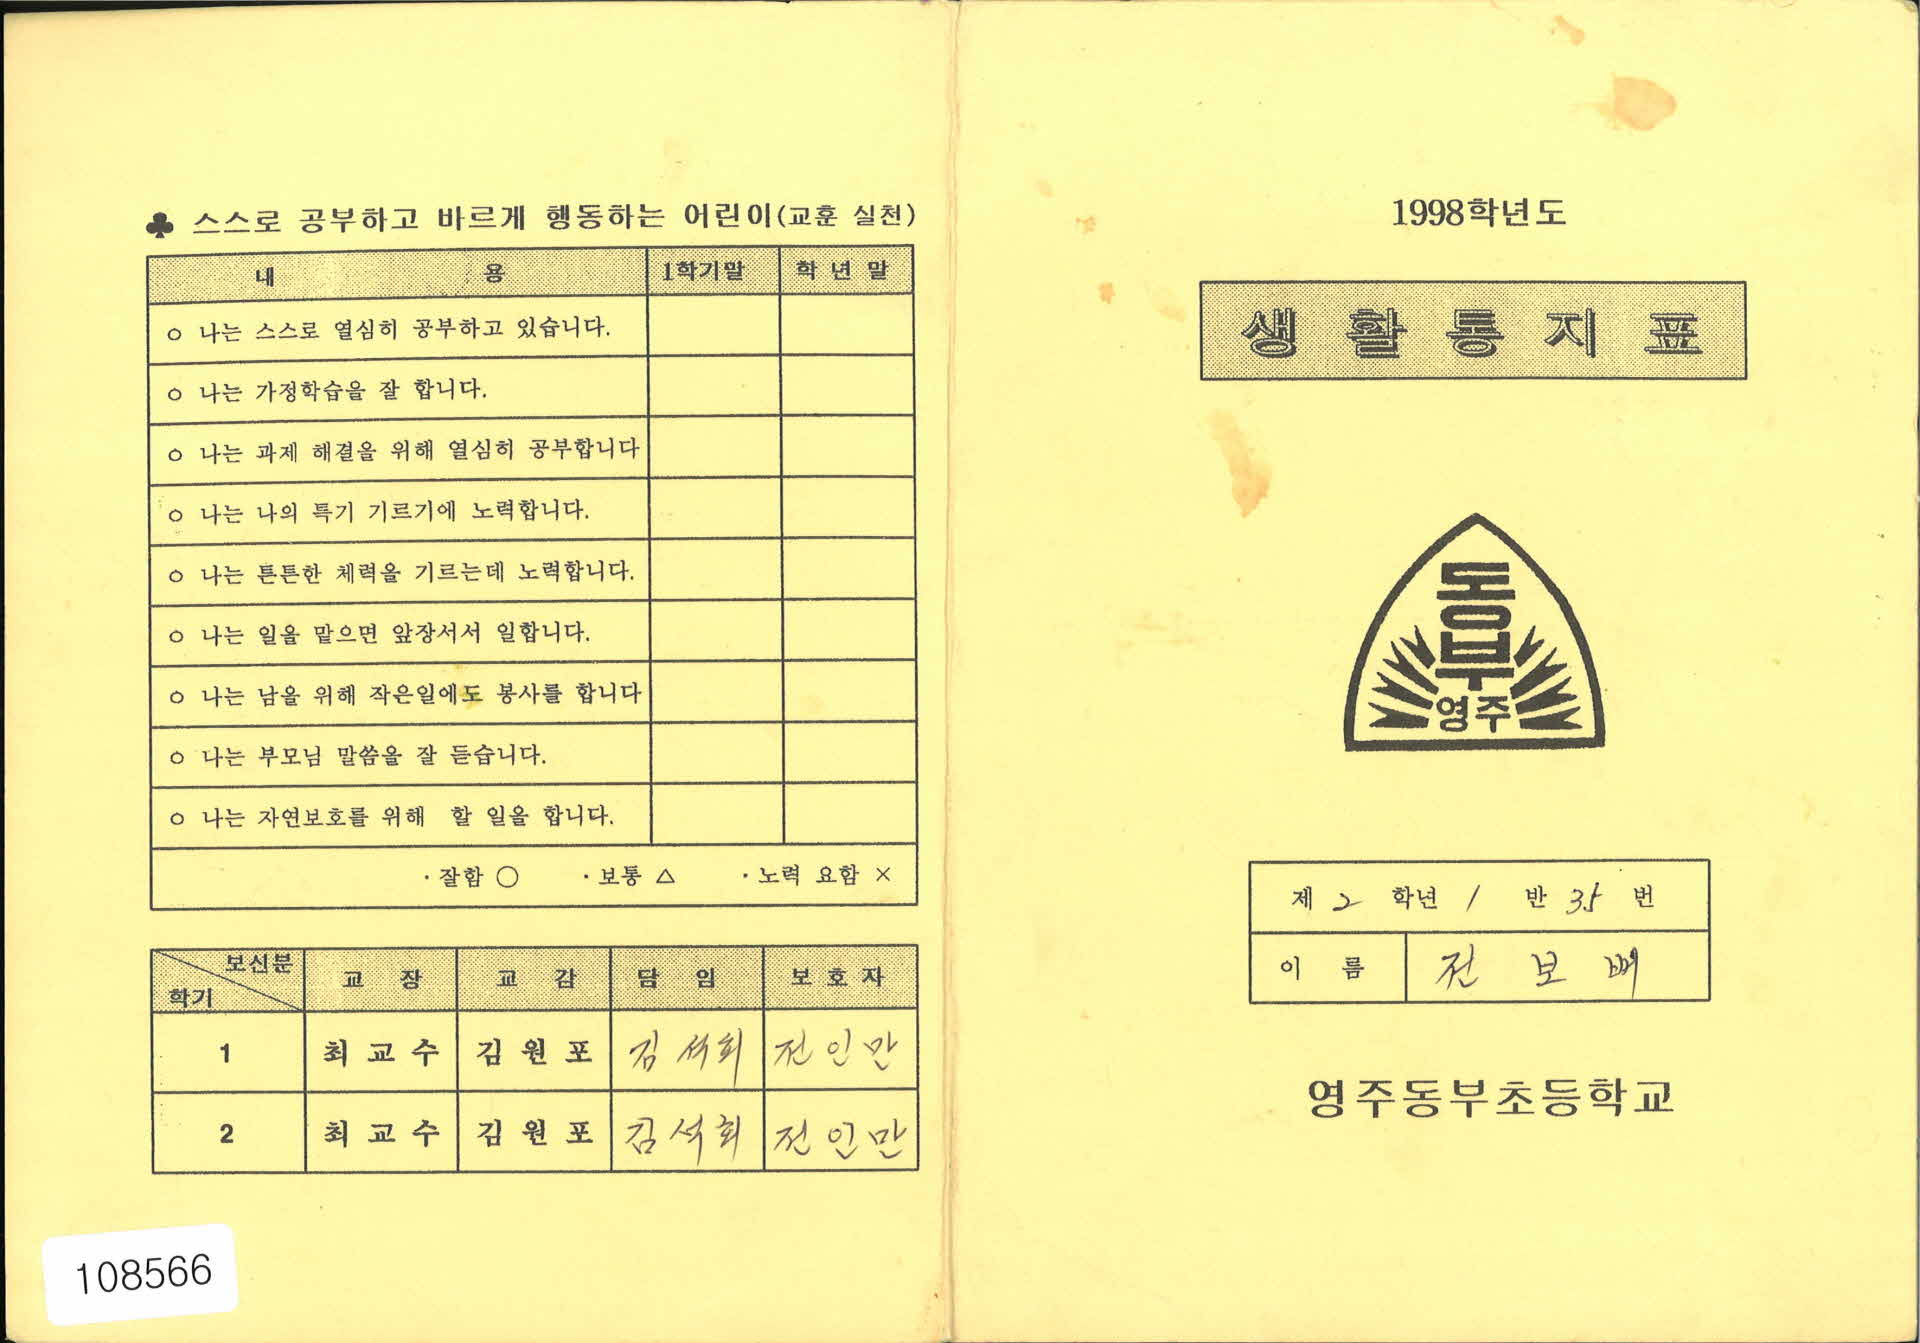 ♣ 스스로 공부하고 바르게 행동하는 어린이(교훈 실천)
내 용 1학기말 학 년 말
○ 나는 스스로 열심히 공부하고 있습니다.
○ 나는 가정학습을 잘 합니다.
○ 나는 과제 해결을 위해 열심히 공부합니다
○ 나는 나의 특기 기르기에 노력합니다.
○ 나는 튼튼한 체력을 기르는데 노력합니다.
○ 나는 일을 맡으면 앞장서서 일합니다.
○ 나는 남을 위해 작은일에도 봉사를 합니다
○ 나는 부모님 말씀을 잘 듣습니다.
○ 나는 자연보호를 위해 할 일을 합니다.
· 잘함 ○ · 보통 △ · 노력 요함 ×
보신분
학기
교 장 교 감 담 임 보 호 자
1 최 교 수 김 원 포 김 석 희 전 인 만
2 최 교 수 김 원 포 김 석 희 전 인 만
108566
1998학년도
생 활 통 지 표
동
부
영주
제 2 학년 1 반 35 번
이 름 전 보 배
영주동부초등학교